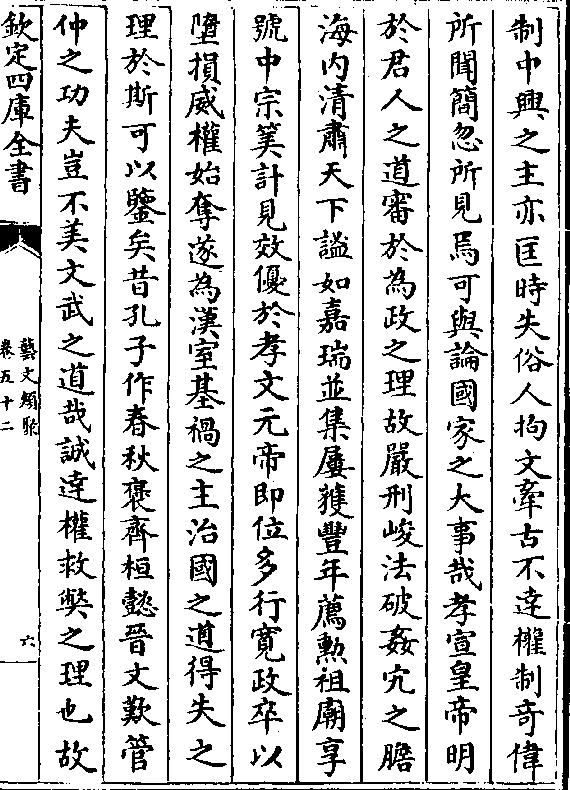 制中興之主亦匡時失俗人拘文牽古不達權制奇偉
所聞簡忽所見焉可與論國家之大事哉孝宣皇帝明
於君人之道審於為政之理故嚴刑峻法破姦宄之膽
海内清肅天下謐如嘉瑞並集屢獲豐年薦勲祖廟享
號中宗筭計見效優於孝文元帝即位多行寬政卒以
墮損威權始奪遂為漢室基禍之主治國之道得失之
理於斯可以鑒矣昔孔子作春秋褒齊桓懿晉文歎管
仲之功夫豈不美文武之道哉誠達權救弊之理也故
欽定四庫全書
藝文類聚
卷五十二
六